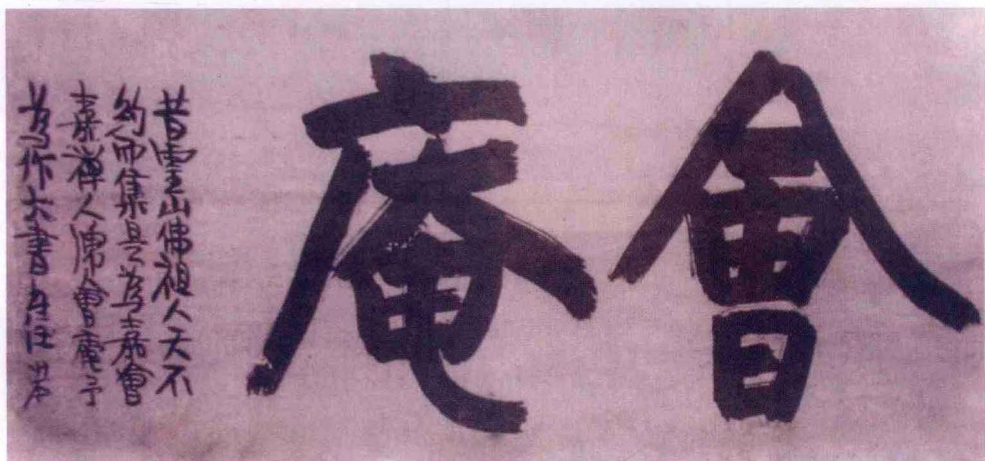 會庵
昔霊山佛祖人天不
約而集是為嘉會
嘉禅人會庵予
為作大書住